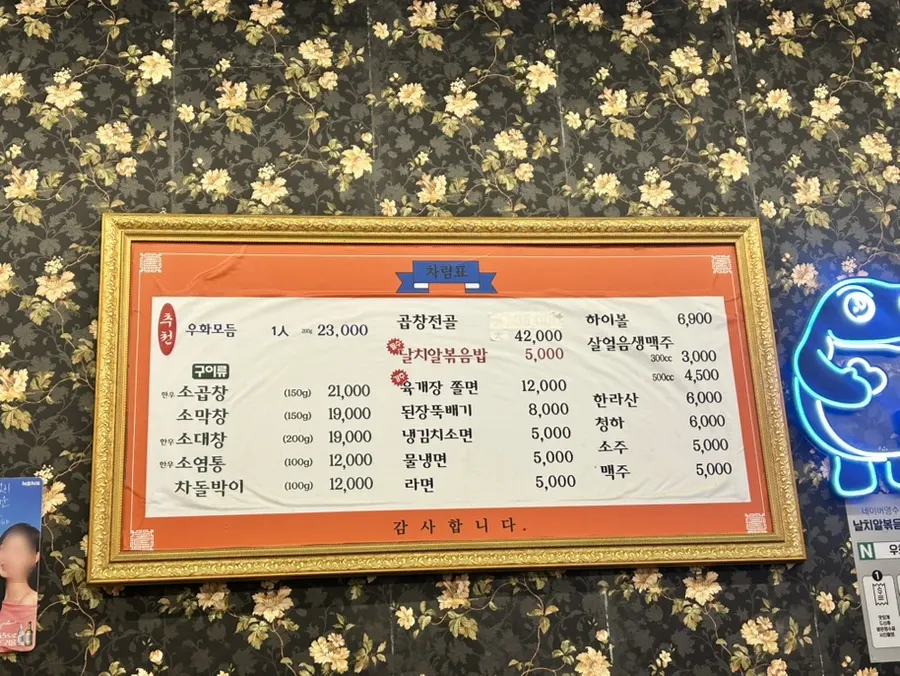 차림표
추천
우화모듬 1人 200g 23,000
구이류
한우 소곱창 (150g) 21,000
소막창 (150g) 19,000
한우 소대창 (200g) 19,000
한우 소염통 (100g) 12,000
차돌박이 (100g) 12,000
곱창전골
42,000
날치알볶음밥 5,000
육개장 쫄면 12,000
된장뚝배기 8,000
냉김치소면 5,000
물냉면 5,000
라면 5,000
하이볼 6,900
살얼음생맥주
300cc 3,000
500cc 4,500
한라산 6,000
청하 6,000
소주 5,000
맥주 5,000
감사합니다.
네이버영수
날치알볶음
N
1